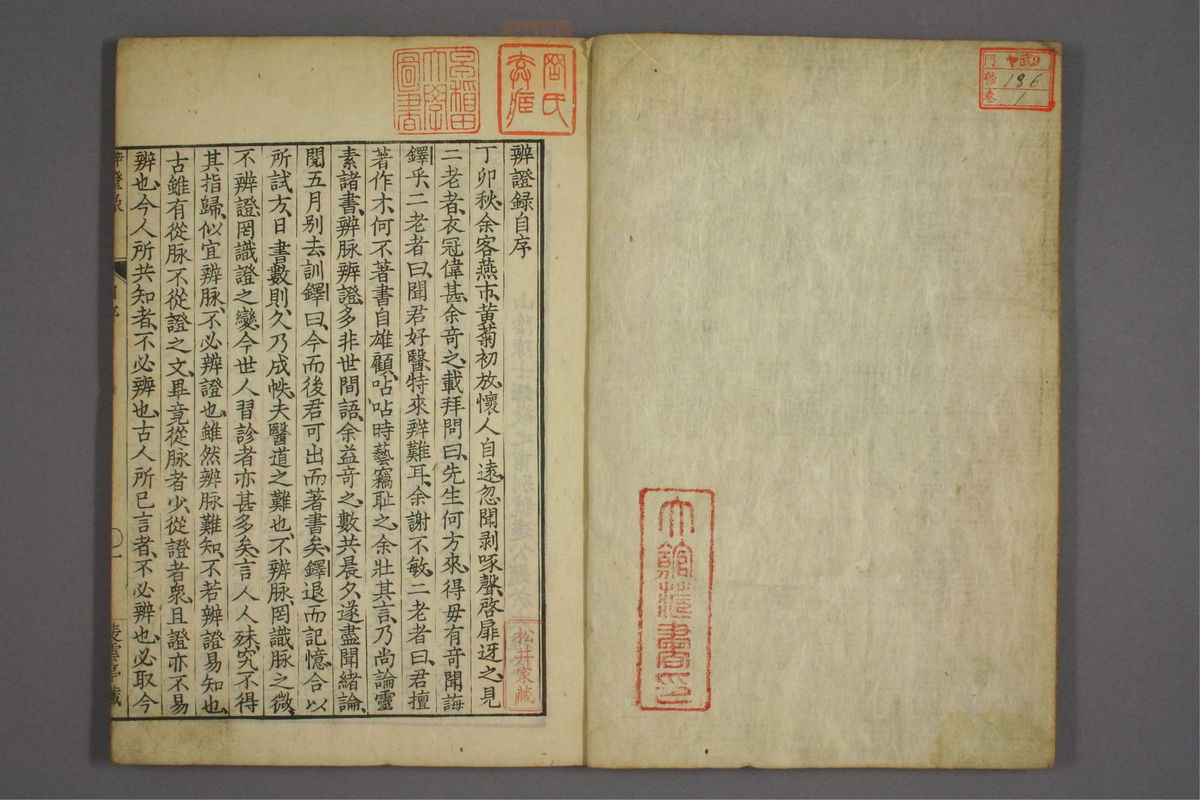 門 武9
號 186
卷 1
早稻田大學圖書
辨證錄自序
丁卯秋、余客燕市、黃菊初放、懷人自遠、忽聞剥啄聲、啓扉迓之、見
二老者、衣冠偉甚、余奇之、載拜問曰、先生何方來、得毋有奇聞誨
鐸乎、二老者曰、聞君好醫、特來辨難耳、余謝不敏、二老者曰、君擅
著作才、何不著書自雄、顧呫呫時藝竊耻之、余壯其言、乃尚論靈
素諸書、辨脉辨證、多非世間語、余益奇之、數共晨夕、遂盡聞緒論、
閱五月別去、訓鐸曰、今而後君可出而著書矣、鐸退而記憶、合以
所試方、日書數則、久乃成帙、夫醫道之難也、不辨脉、罔識脉之微、
不辨證、罔識證之變、今世人習診者亦甚多矣、言人人殊、究不得
其指歸、似宜辨脉、不必辨證也、雖然辨脉難知、不若辨證易知也、
古雖有從脉不從證之文、畢竟從脉者少、從證者衆、且證亦不易
辨也、今人所共知者、不必辨也、古人所已言者、不必辨也、必取今
松井家藏
辨證錄
自序
○一